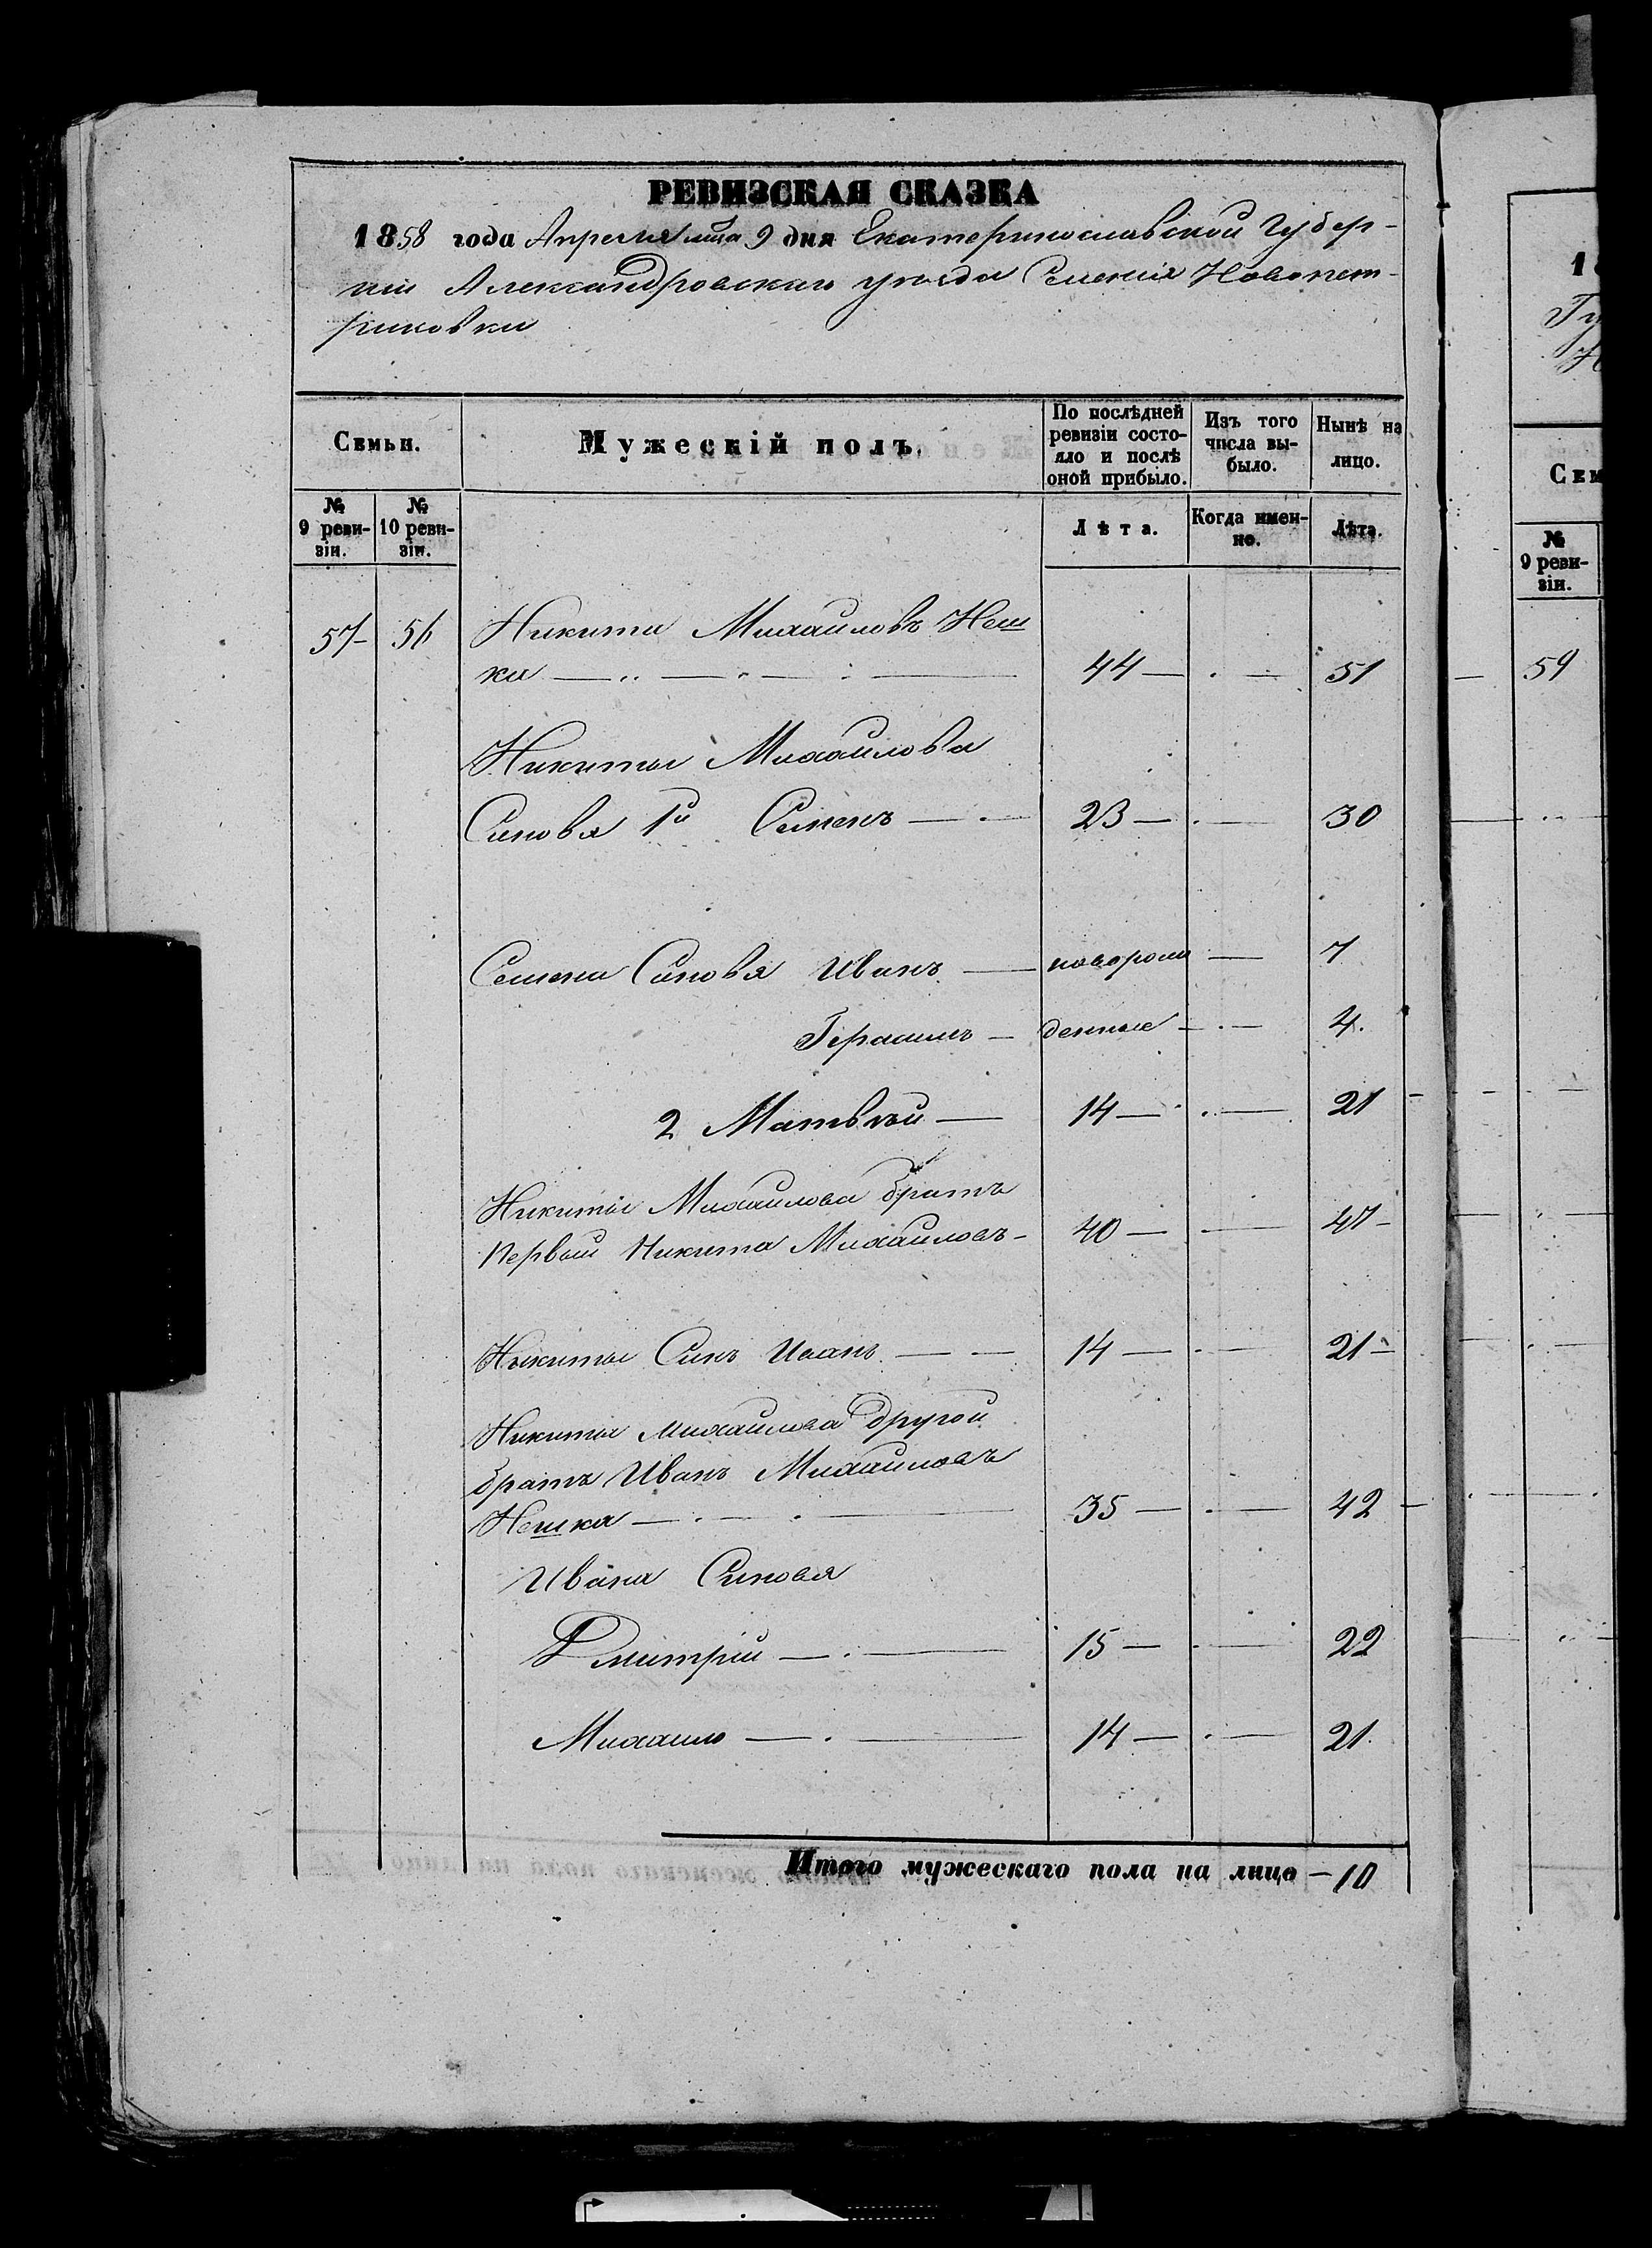 РЕВИЗСКАЯ СКАЗКА
1858 года Апреля мца 9 дня Екатеринославской Губер-
нии Александровскаго уѣзда Селенія Новопет-
риковки
Семьи.
Мужескій полъ.
По послѣдней ревизіи состо-яло и послѣ оной прибыло.
Изъ того числа вы-было.
Нынѣ на лицо.
№ 9 реви-зіи.
№ 10 реви-зіи.
Лѣта.
Когда имен-но.
Лѣта.
57 56 Никита Михайловъ Неш
ка 44 51
Никиты Михайлова
Синовя 1й Семенъ 23 30
Семена Синовя Иванъ новорож 7
Герасимъ денные 4.
2 Матвѣй 14 21
Никиты Михайлова братъ
первый Никита Михайловъ 40 47
Никиты Синъ Иванъ 14 21
Никиты Михайлова другой
братъ Иванъ Михайловъ
Нешка 35 42
Ивана Синовя
Дмитрій 15 22
Михайло 14 21
Итого мужескаго пола на лицо 10
1
Сем
№ 9 реви-зіи.
59